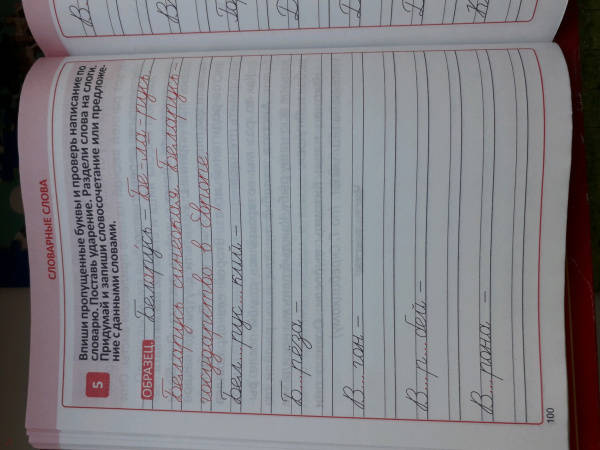 СЛОВАРНЫЕ СЛОВА
5
Впиши пропущенные буквы и проверь написание по
словарю. Поставь ударение. Раздели слова на слоги.
Придумай и запиши словосочетание или предложе-
ние с данными словами.
ОБРАЗЕЦ. Беларусь – Бе-ла-русь
Беларусь синеокая. Беларусь –
государство в Европе.
Бел...рус...кий –
Б...рёза –
В...гон –
В...р...бей –
В...рона –
100